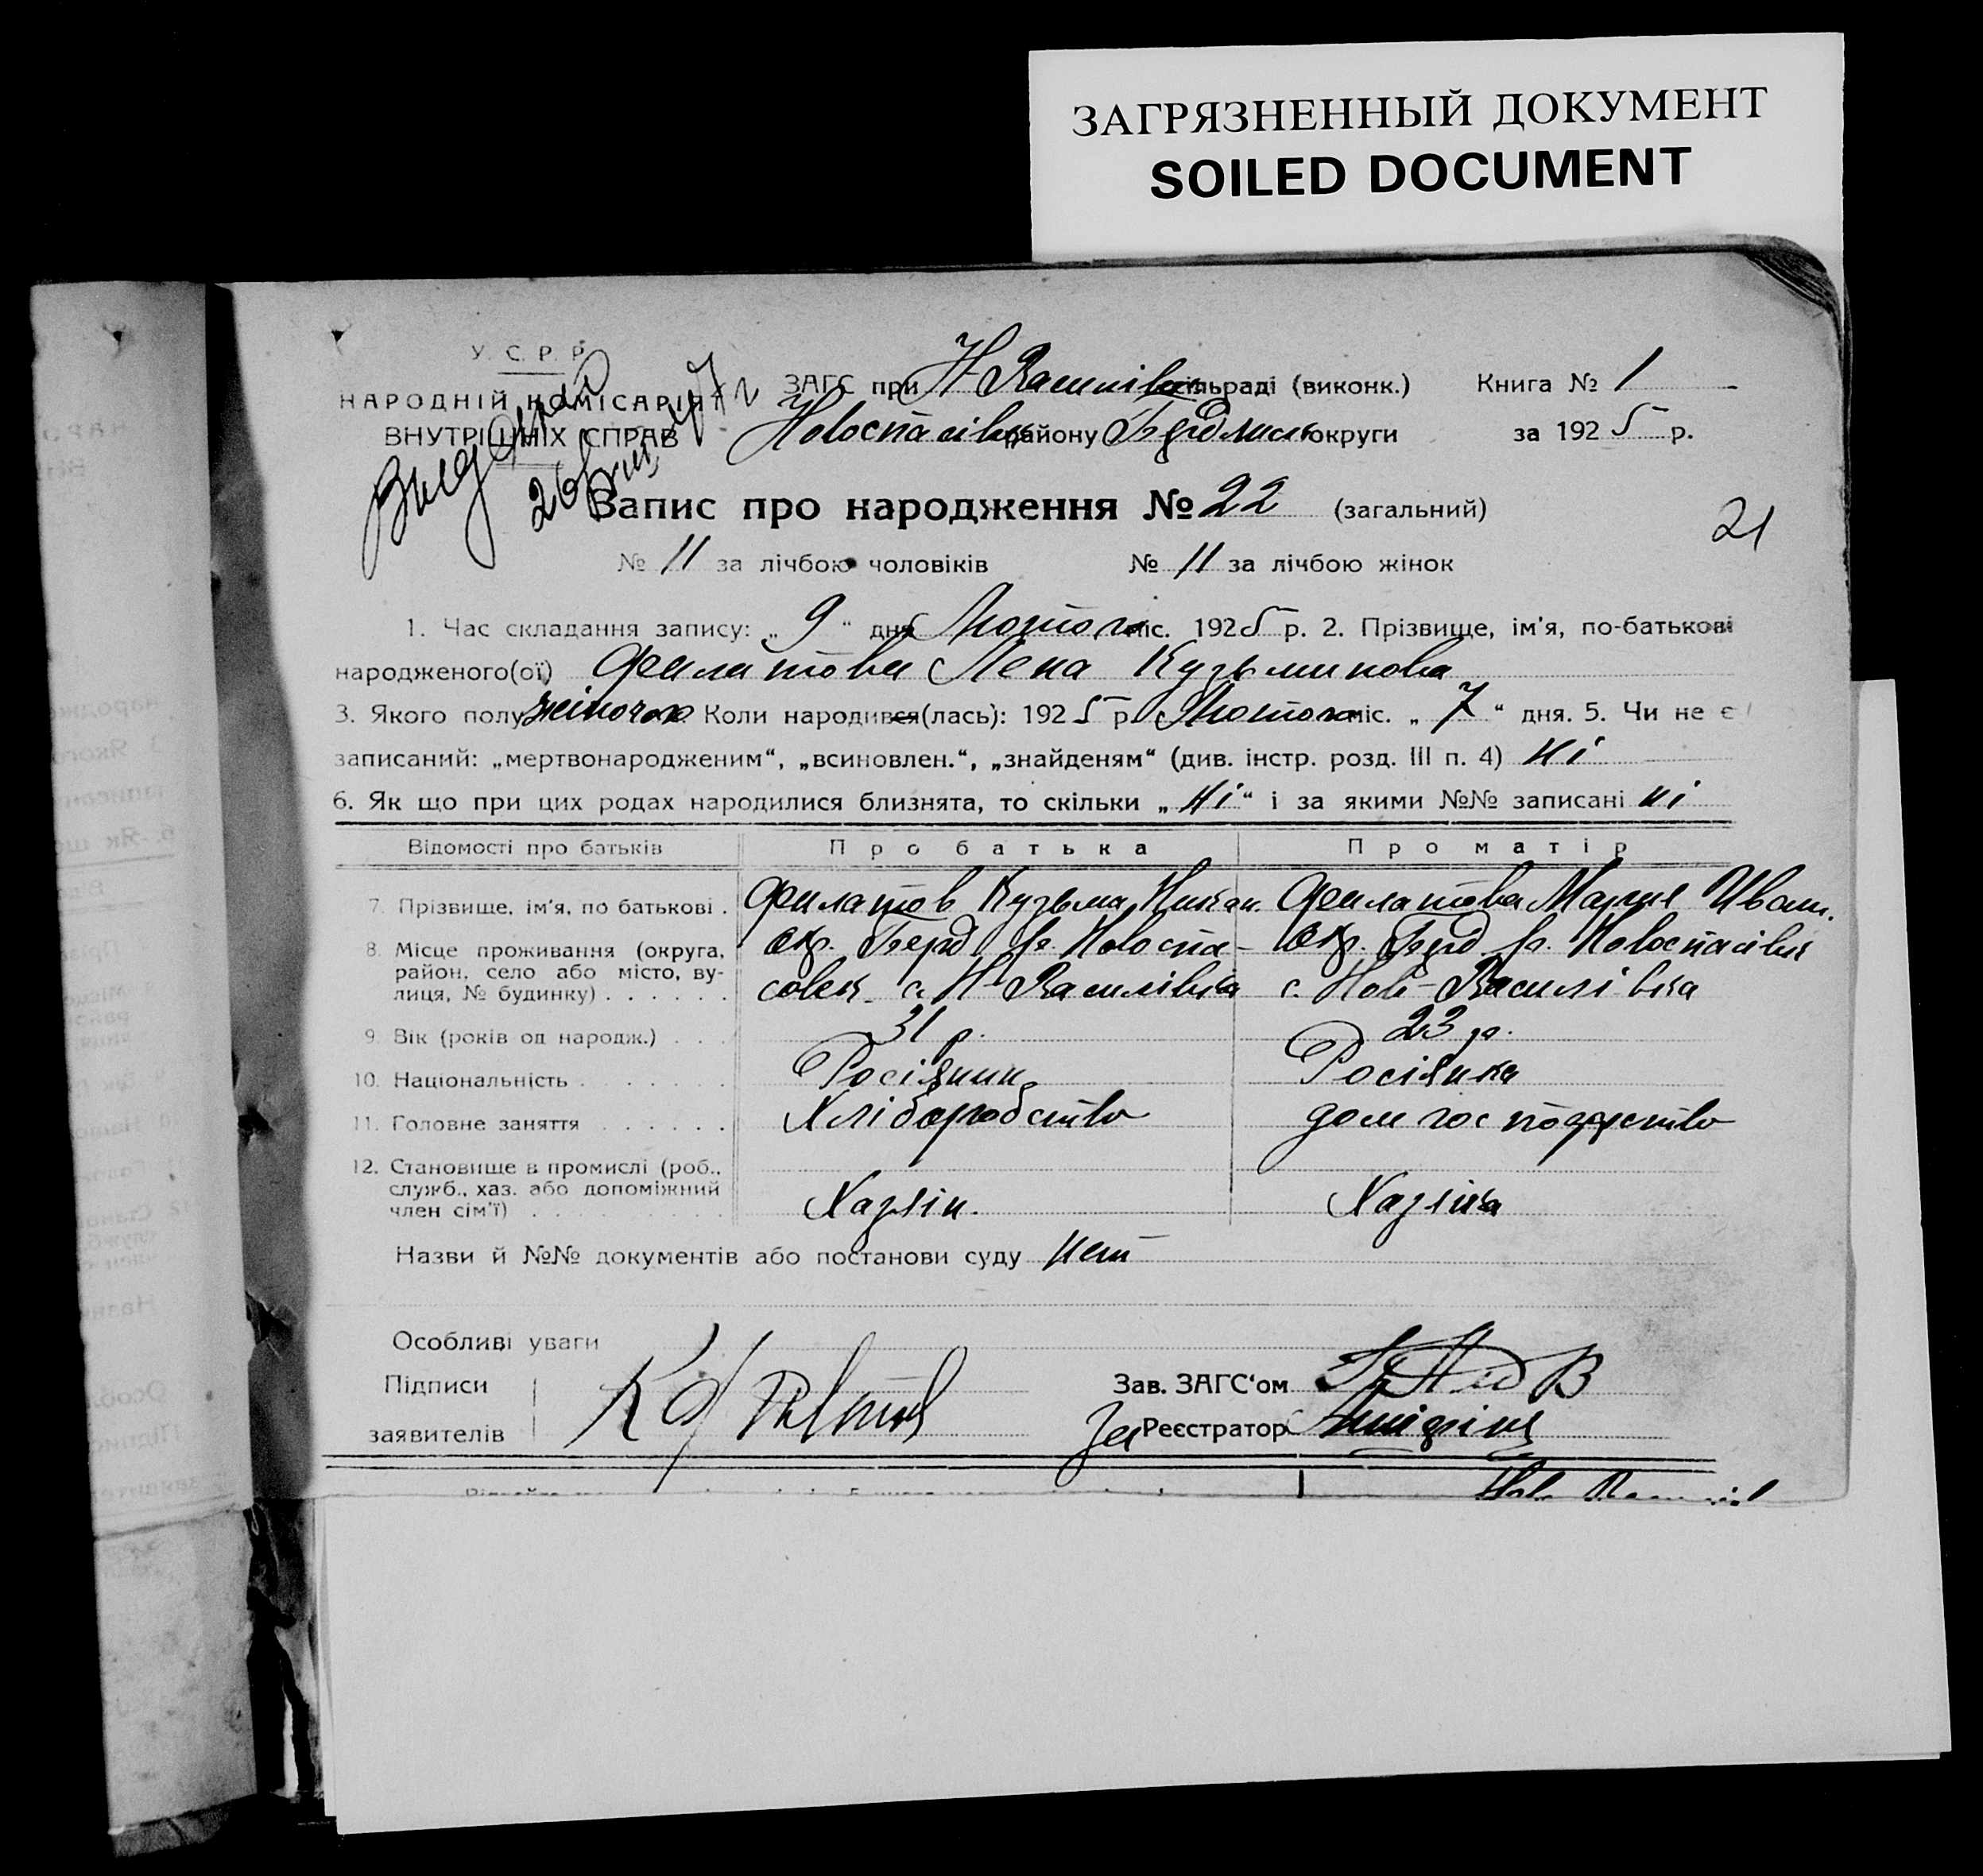 ЗАГРЯЗНЕННЫЙ ДОКУМЕНТ
SOILED DOCUMENT
У. С. Р. Р.
НАРОДНІЙ КОМІСАРІЯТ
ВНУТРІШНІХ СПРАВ
ЗАГС при Н-Василівськ сільраді (виконк.) Книга № 1
Новоспасівськ району Бердянськ округи за 1925 р.
Запис про народження № 22 (загальний)
21
№ 11 за лічбою чоловіків № 11 за лічбою жінок
1. Час складання запису: „ 9 “ дня Лютого міс. 1925 р. 2. Прізвище, ім'я, по-батькові
народженого(ої) Филатова Лена Кузьминова
3. Якого полу жіночого Коли народився(лась): 1925 р. Лютого міс. „ 7 “ дня. 5. Чи не є
записаний: „мертвонародженим“, „всиновлен.“, „знайденям“ (див. інстр. розд. III п. 4) Ні
6. Як що при цих родах народилися близнята, то скільки „ Ні “ і за якими №№ записані ні
Відомості про батьків Про батька Про матір
7. Прізвище, ім'я, по батькові . Филатов Кузьма Никан. Филатова Мария Иван.
8. Місце проживання (округа, Окр. Берд р. Новоспа- Окр. Берд р. Новоспасівськ
район, село або місто, ву-
лиця, № будинку) . . . . . . совськ. с. Н-Василівка с. Ново-Василівка
9. Вік (років од народж.) . . . 31 р. 23 р.
10. Національність . . . . . . Росіянин Росіянка
11. Головне заняття . . . . . . Хліборобство дом господарство
12. Становище в промислі (роб.,
служб., хаз. або допоміжний
член сім'ї) . . . . . . . . . Хазяін. Хазяіка
Назви й №№ документів або постанови суду нет
Особливі уваги
Підписи
заявителів
Зав. ЗАГС'ом
За Реєстратор